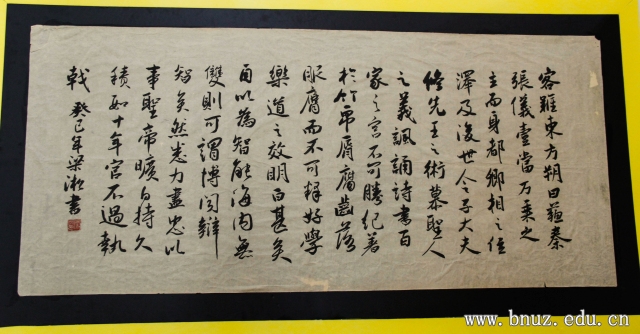 客難東方朔曰蘇秦
張儀壹當万乘之
主而身都卿相之位
澤及後世今子大夫
修先王之術慕聖人
之義諷誦詩書百
家之言不可勝紀著
於竹帛脣腐齒落
服膺而不可釋好學
樂道之效明白甚矣
自以為智能海内無
雙則可謂博聞辯
智矣然悉力盡忠以
事聖帝曠日持久
積數十年官不過執
戟 癸巳年梁漱書
www.bnuz.edu.cn